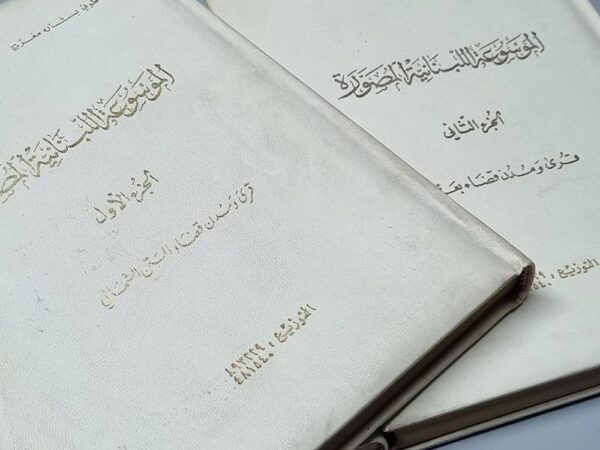 طوني بشاره مفرج
الموسوعة اللبنانية المصورة
الجزء الأول
قرى ومدن قضاء المتن الشمالي
التوزيع: ٨٩٣٢٢٩
٤٨١٥٤٠
الموسوعة اللبنانية المصورة
الجزء الثاني
قرى ومدن قضاء
التوزيع: